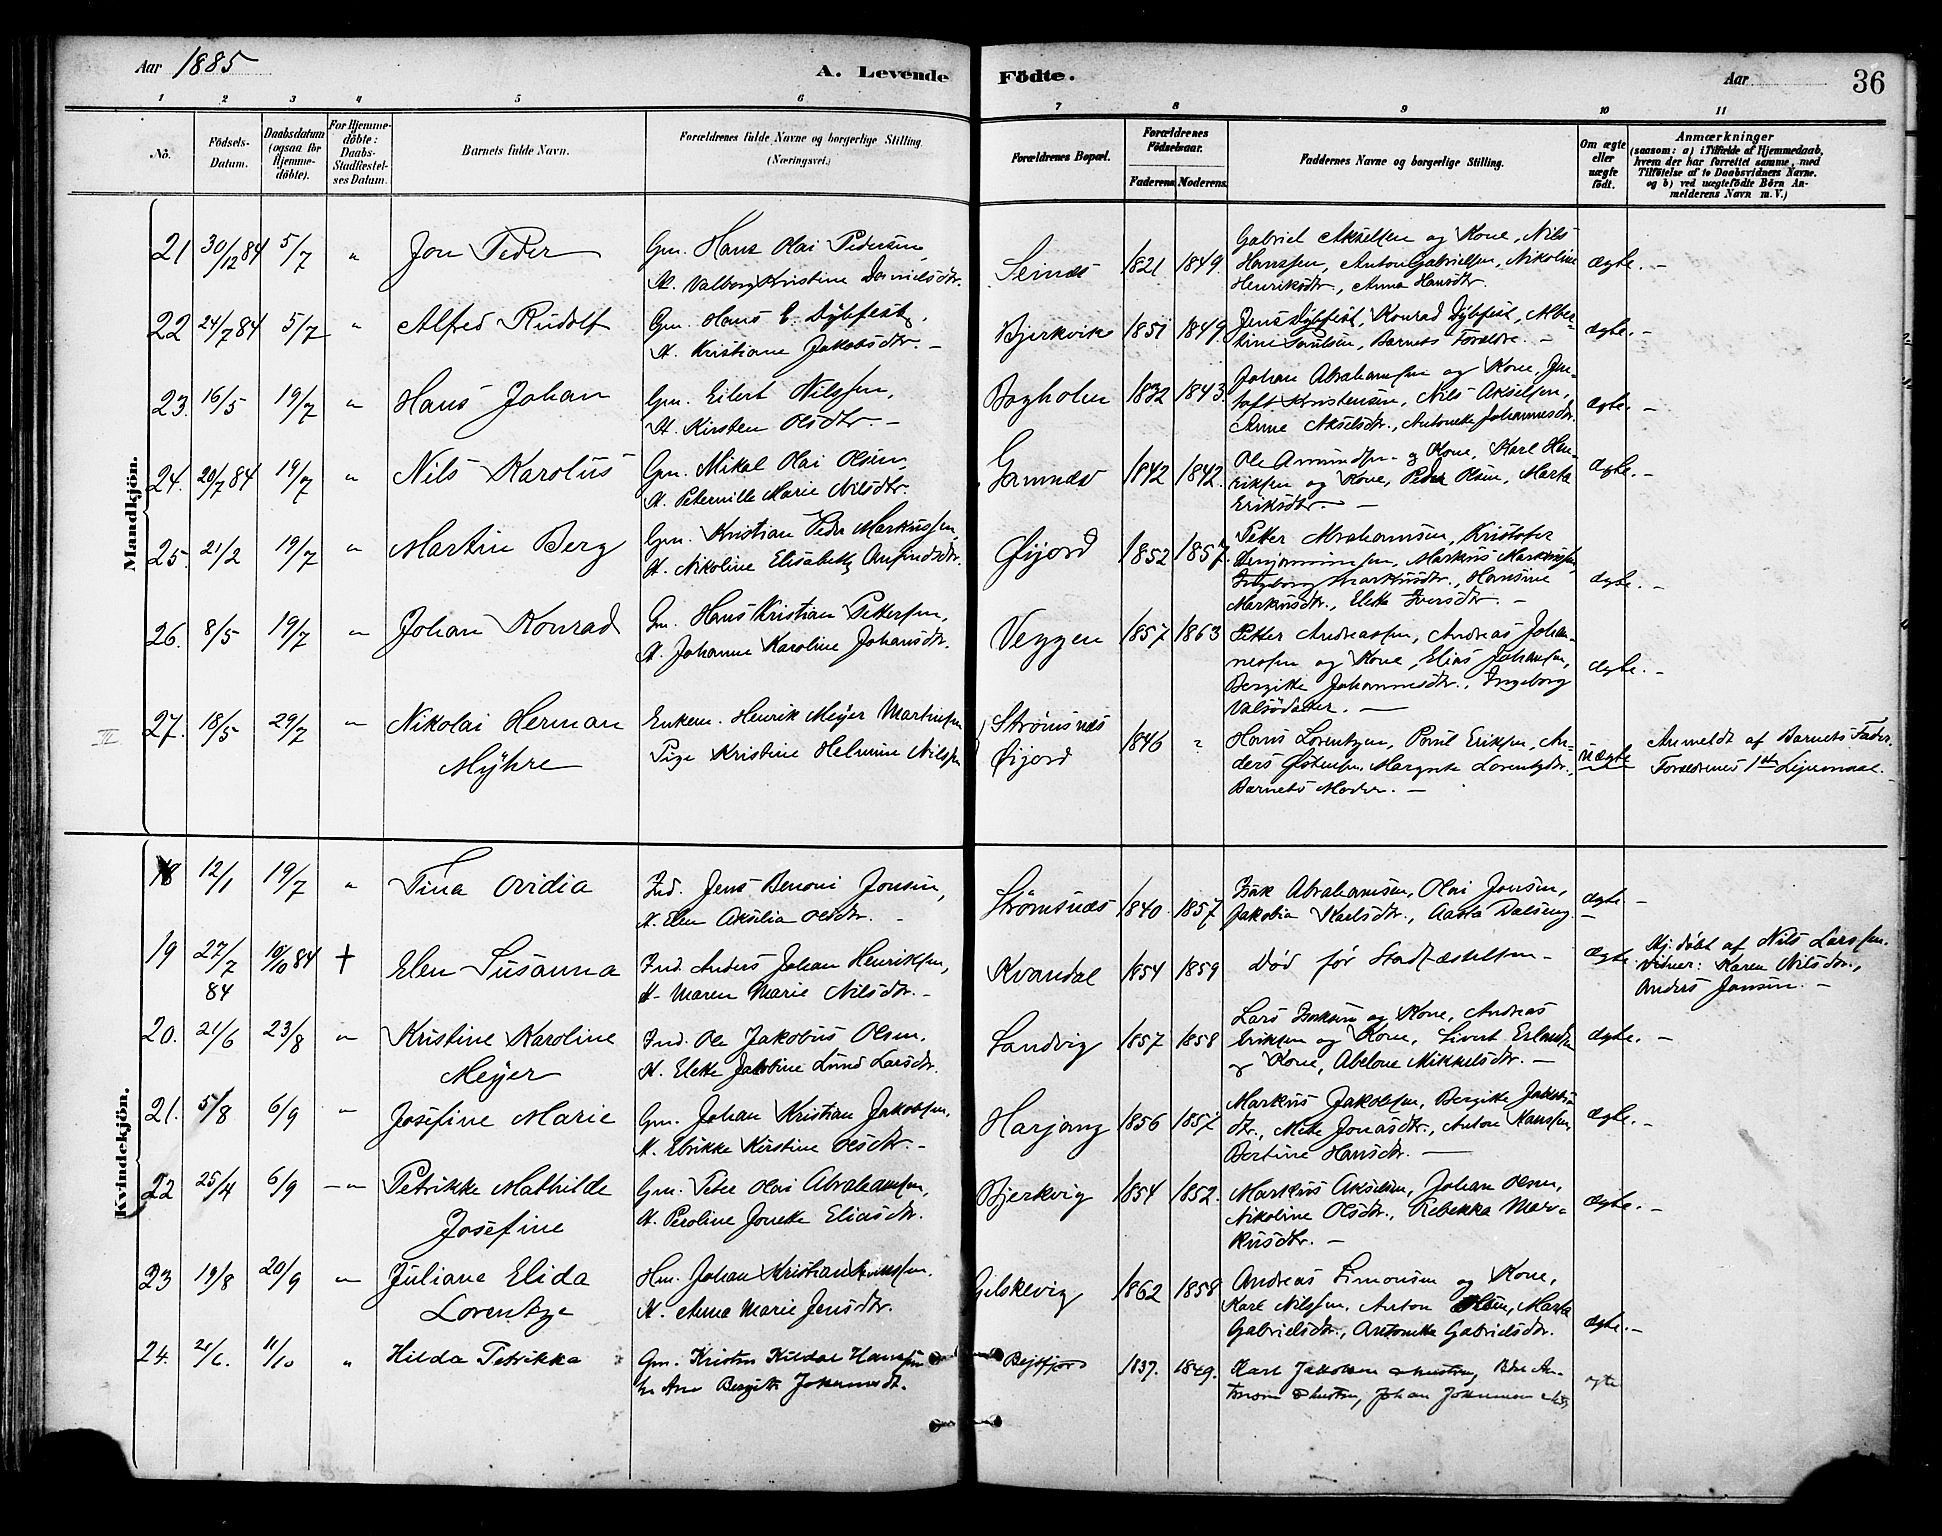 Aar 1885
A. Levende Födte.
Aar
36
1 2 3 4 5 6 7 8 9 10 11
No.
Födsels-
Datum.
Daabsdatum
(ogsaa for
Hjemme-
döbte).
For Hjemme-
döbte:
Daabs-
Stadfæstel-
ses Datum.
Barnets fulde Navn.
Forældrenes fulde Navne og borgerlige Stilling.
(Næringsvei.)
Forældrenes Bopæl.
Forældrenes
Födselsaar.
Faderens. Moderens.
Faddernes Navne og borgerlige Stilling.
Om ægte
eller
uægte
født.
Anmærkninger
(saasom: a) i Tilfælde af Hjemmedaab,
hvem der har forrettet samme, med
Tilföielse af to Daabsvidners Navne.
og b) ved uægtefödte Börn An-
melderens Navn m. V.)
Mandkjön.
21 30/12 84 5/7 " Jon Peder
Gm. Hans Olai Pedersen,
H. Valborg Kristine Danielsdtr.
Seinæs 1821 1849.
Gabriel Akselsen og Kone, Nils
Hanssen, Anton Gabrielsen, Nikoline
Henriksdtr., Anna Hansdtr.
ægte. –
22 24/7 84 5/7 " Alfred Rudolf
Gm. Hans E. Dybfest,
H. Kristiane Jakobsdtr. –
Bjerkvik 1851 1849.
Jens Dybfest, Konrad Dybfest, Alber-
tine Poulsen, Barnets Forældre. –
ægte. –
23. 16/5 19/7 " Hans Johan
Gm. Eilert Nilssen,
H. Kirsten Olsdtr. –
Bogholm 1832 1843.
Johan Abrahamsen og Kone, Jen-
toft Kristensen, Nils Akselsen,
Anne Akselsdtr., Antonette Johannesdtr.
ægte. –
24. 20/7 84 19/7 " Nils Karolus
Gm. Mikal Olai Olsen,
H. Peternille Marie Nilsdtr.
1842 1842.
Ole Amundsen og Kone, Karl Hen-
riksen og Kone, Peder Olsen, Marta
Eriksdtr. –
ægte. –
25. 21/2 19/7 " Martin Berg
Gm. Kristian Peder Markussen,
H. Nikoline Elisabeth Anfindsdtr.
Øijord 1852 1857.
Petter Abrahamsen, Kristofer
Benjaminsen, Markus Markussen,
Ingeborg Markusdtr., Hansine
Markusdtr., Elette Iversdtr. –
ægte. –
26. 8/5 19/7 " Johan Konrad
Gm. Hans Kristian Pettersen,
H. Johanne Karoline Johansdtr.
Veggen 1857 1863
Petter Andreassen, Andreas Johan-
nessen og Kone, Elias Johansen,
Bergitte Johannesdtr., Ingeborg
Valsødatter. –
ægte. –
III 27. 18/5 29/7 " Nikolai Herman
Myhre
Enkem. Henrik Meyer Martinsen
Pige Kristine Helmine Nilssen
Strømsnæs
Øijord
1846 ?
Hans Lorentzen, Povil Eriksen, An-
ders Østensen, Margrete Lorentzdtr.,
Barnets Moder. –
uægte
Anmeldt af Barnets Fader.
Forældrenes 1ste Leiermaal.
Kvindekjön.
18 12/1 19/7 " Tina Ovidia
Ind. Jens Benoni Jonsen,
H. Elen Akselia Olsdtr. –
Strømsnæs 1840. 1857
Isak Abrahamsen, Olai Jonsen,
Jakobia Karlsdtr., Aasta Dalseng
ægte –
19 27/7 84 10/10 84 + Elen Susanna
Ind. Anders Johan Henriksen,
H. Maren Marie Nilsdtr. –
Kvandal 1854 1859
Død før Stadfæstelsen –
ægte
Hj. døbt af Nils Larssen.
Vitner: Karen Nilsdtr.,
Anders Jonsen. –
20. 21/6 23/8 " Kristine Karoline
Meyer
Ind. Ole Jakobus Olsen,
H. Elette Jakobine Lund Larsdtr.
Sandvig 1857 1858
Lars Isaksen og Kone, Andreas
Eriksen og Kone, Sivert Erlandsen
og Kone, Abelone Mikkelsdtr. –
ægte. –
21. 5/8 6/9 " Josefine Marie
Gm. Johan Kristian Jakobsen,
H. Ulrikke Kirstine Olsdtr. –
Harjang 1856 1857
Markus Jakobsen, Bergitte Jakobs-
dtr., Mette Jonasdtr., Anton Hanssen,
Bertine Hansdtr. –
ægte. –
22 25/4 6/9 – " Petrikke Mathilde
Josefine
Gm. Peter Olai Abrahamsen,
H. Peroline Jonette Eliasdtr.
Bjerkvig 1854 1852.
Markus Akselsen, Johan Olsen,
Nikoline Olsdtr., Rebekka Mar-
kusdtr. –
ægte. –
23 19/8 20/9 " Juliane Elida
Lorentze
Hm. Johan Kristian Hanssen,
H. Anna Marie Jensdtr.
Gilskevig 1862 1858
Andreas Simonsen og Kone,
Karl Nilssen, Anton Olsen, Marta
Gabrielsdtr., Antonette Gabrielsdtr.
ægte. –
24. 21/6. 11/10 " Hilda Petrikka
Gm. Kristen Kildal Hanssen
Bergitte Johannesdt.
Bejsfjord 1837. 1849.
Karl Jakobsen
Johan Johannesen
ægte